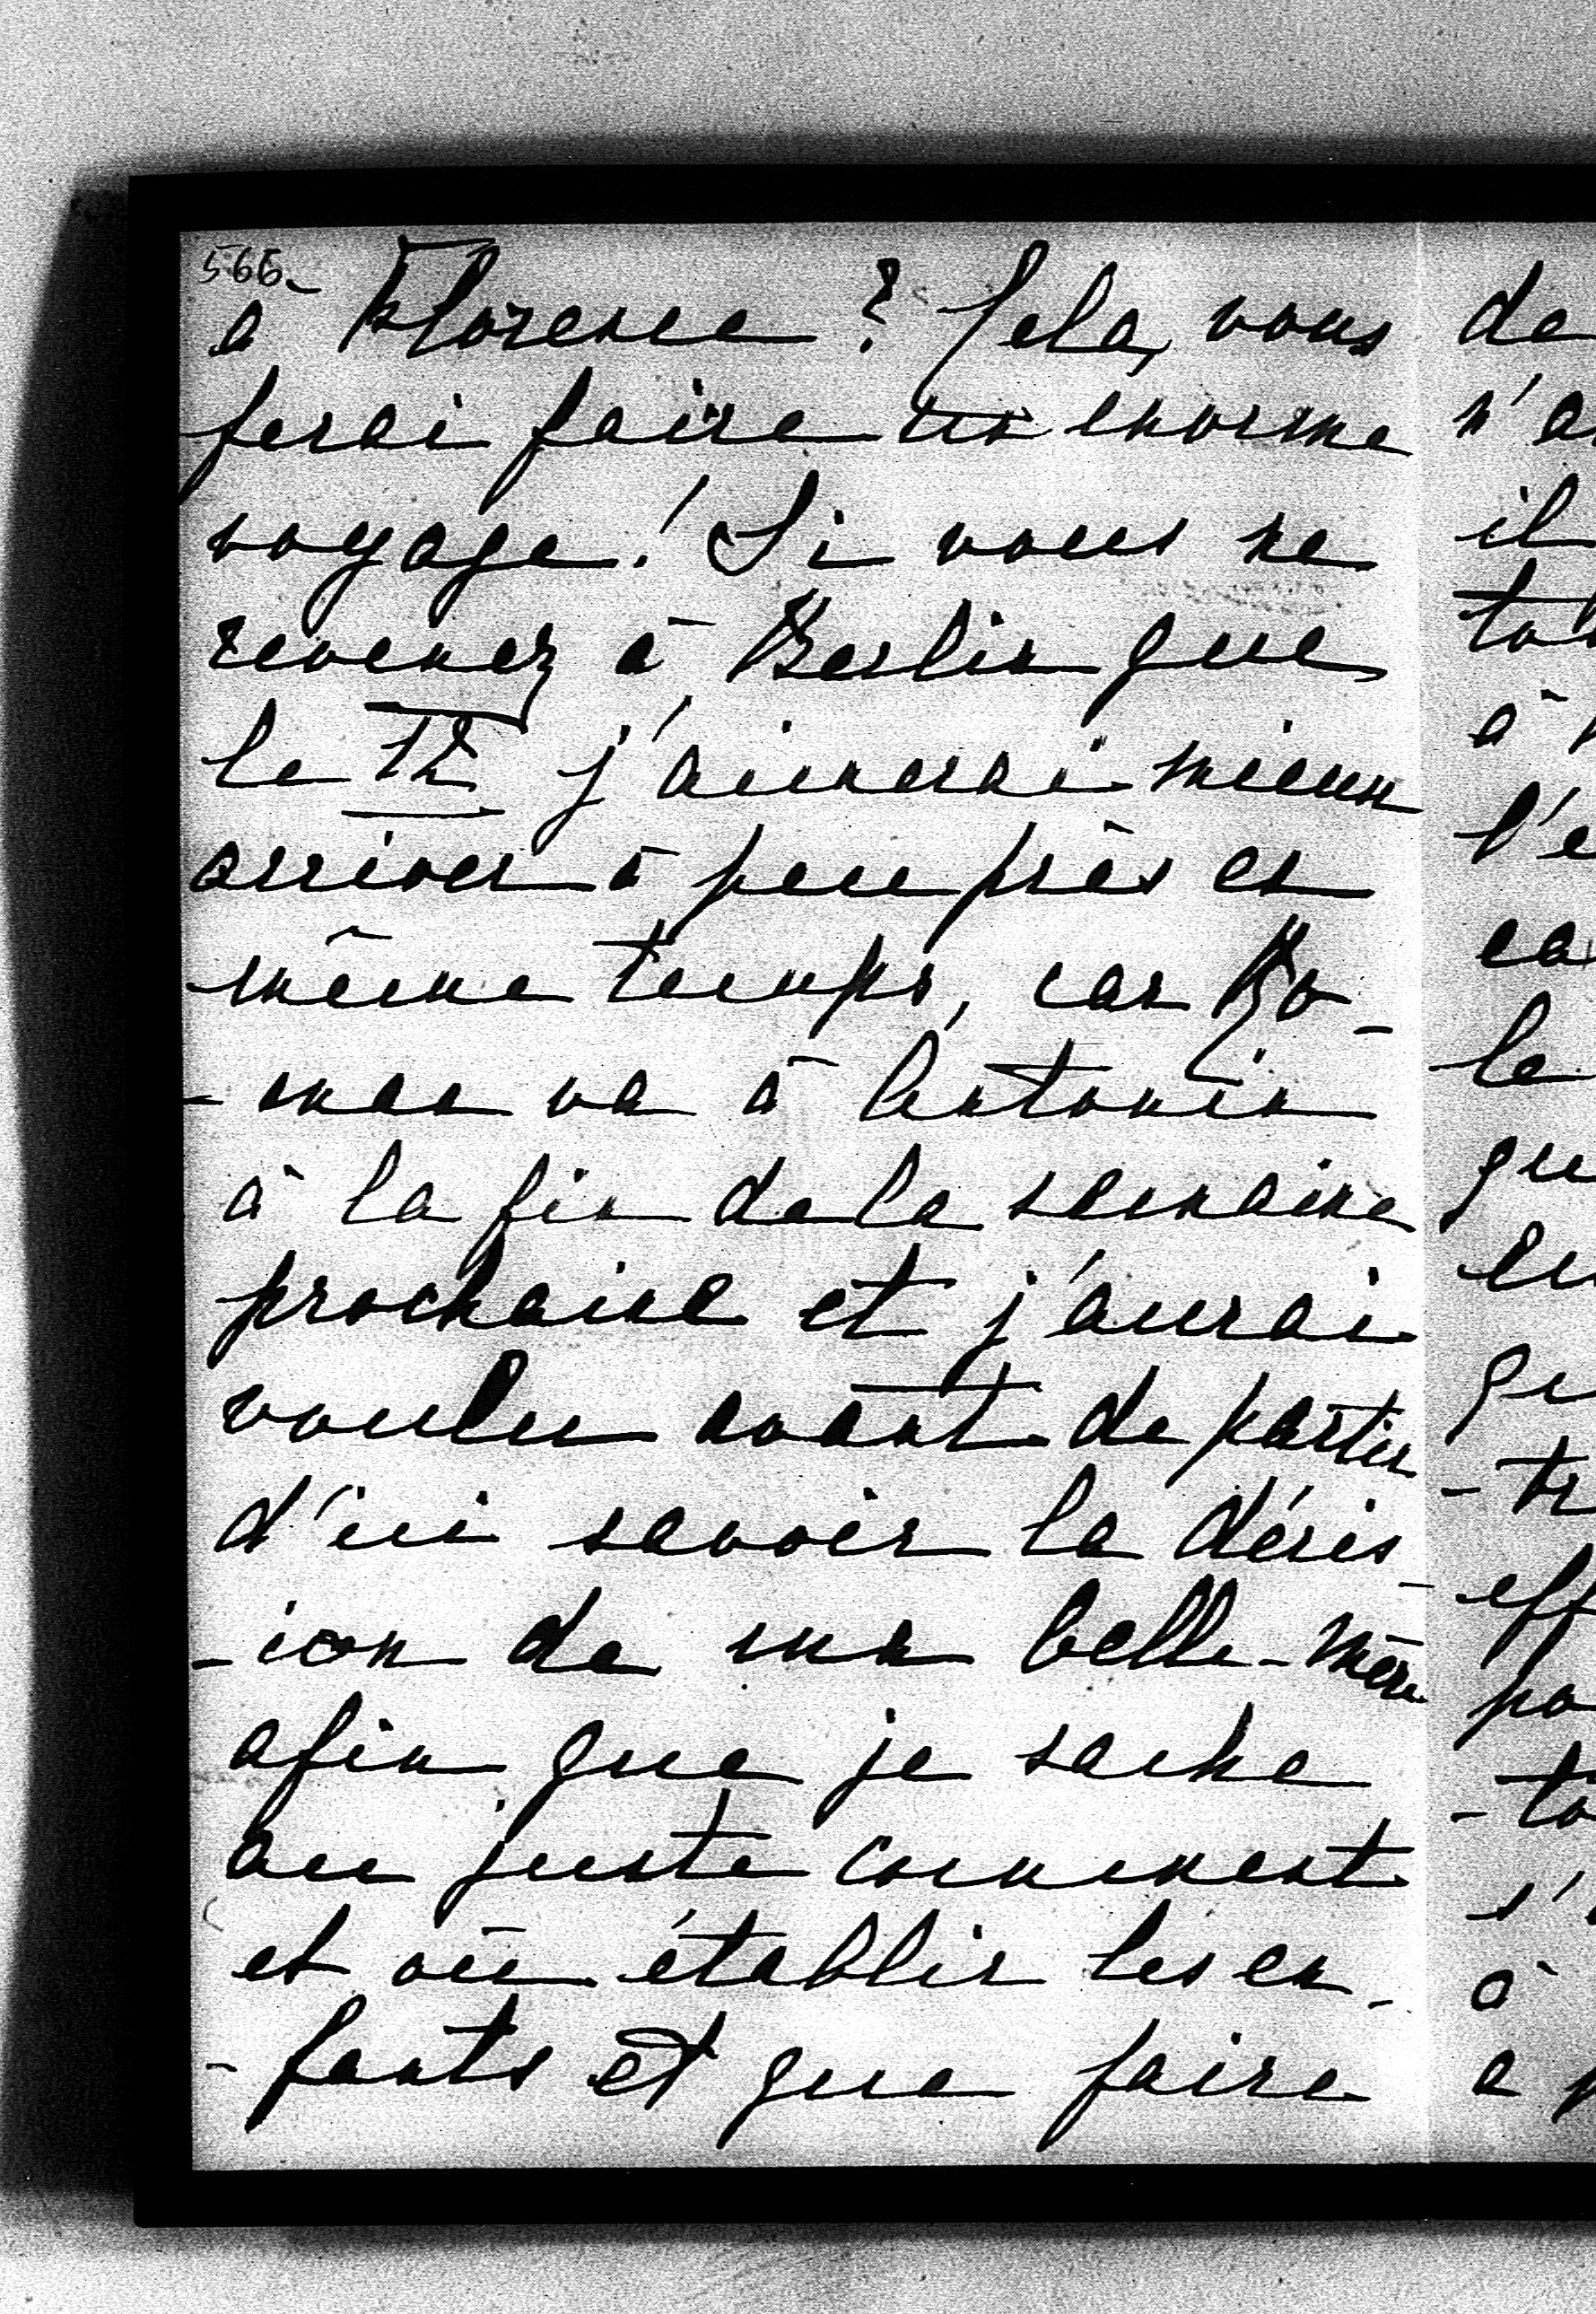 566.
à Florence ? Cela, vous
ferai faire un énorme
voyage ! Si vous ne
revenez à Berlin que
le 12 j'aimerai mieux
arriver à peu près en
même temps, car Ro-
-man va à Antonin
à la fin de la semaine
prochaine et j'aurai
voulu avant de partir
d'ici savoir la décis-
-ion de ma belle-mère
afin que je sache
au juste comment
et où établir les en-
-fants et que faire
de
n'a
il
to
à
l'e
ca
le
qu
en
qu
-tr
eff
po
-to
s'
à
a